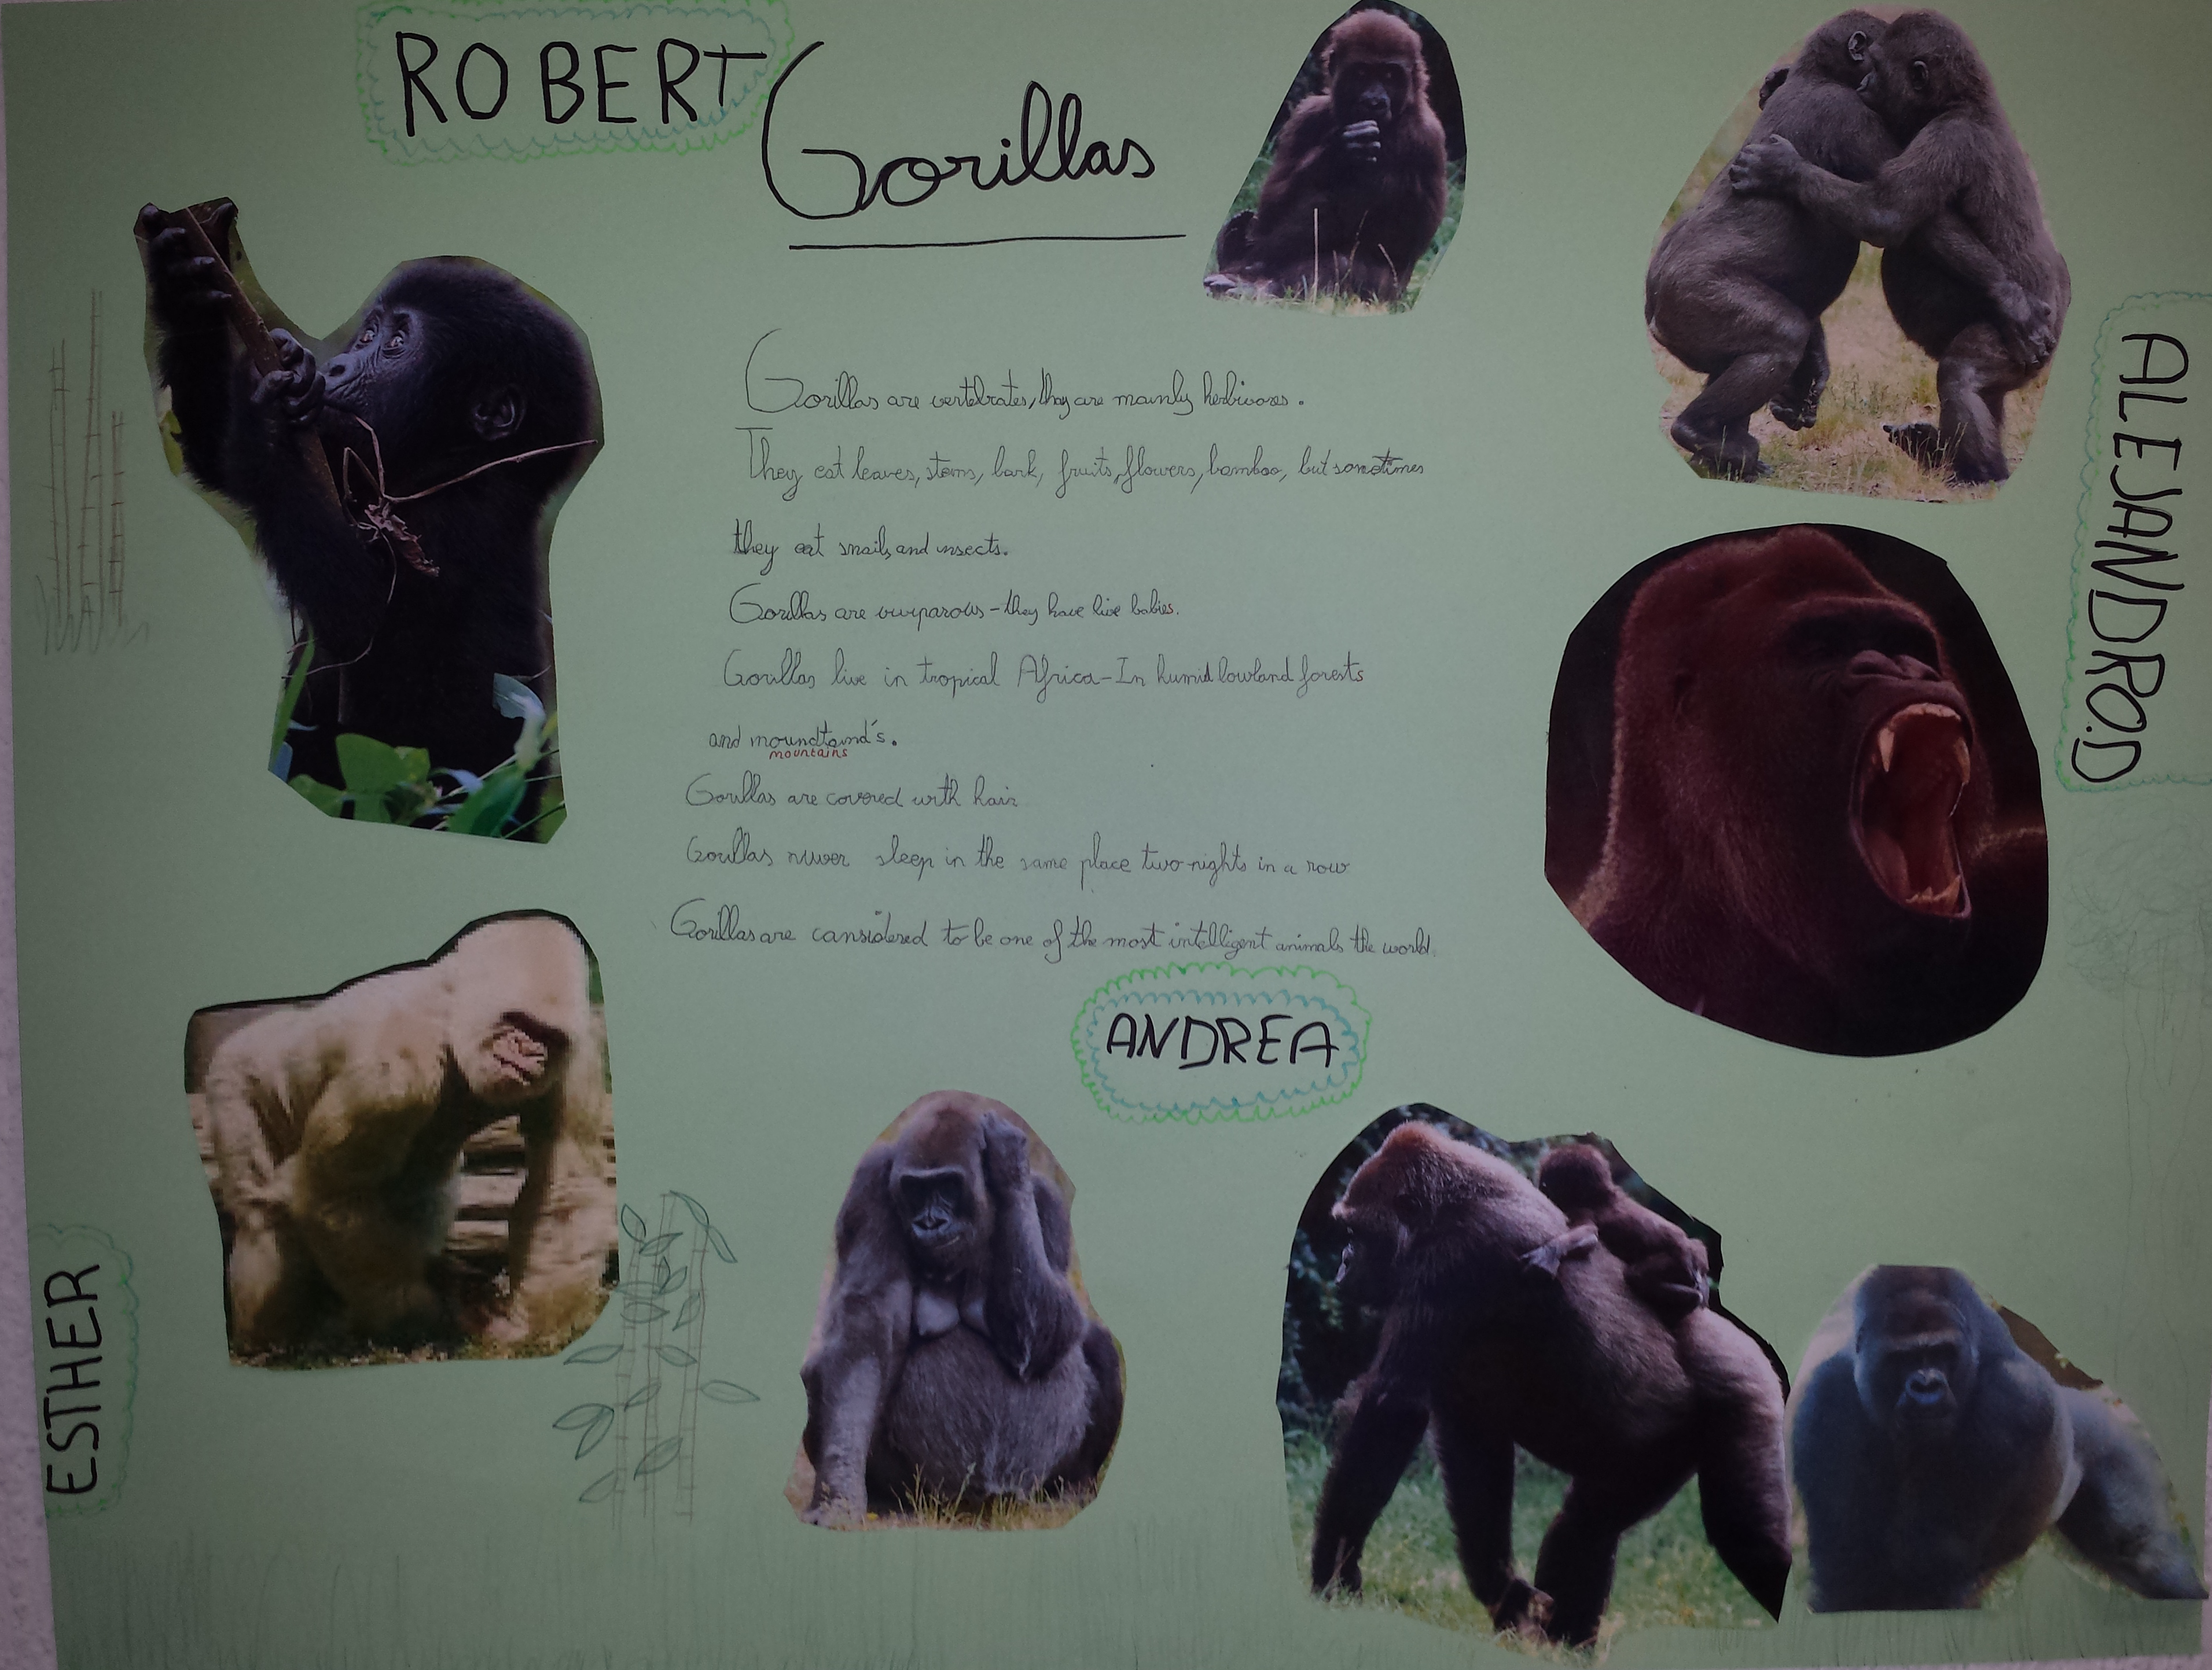 ROBERT
Gorillas
Gorillas are vertebrates, they are mainly herbivores.
They eat leaves, stems, bark, fruits, flowers, bamboo, but sometimes
they eat snails and insects.
Gorillas are viviparous - they have live babies.
Gorillas live in tropical Africa - In humid lowland forests
and moundtaind's.
mountains
Gorillas are covered with hair
Gorillas never sleep in the same place two nights in a row
Gorillas are considered to be one of the most intelligent animals the world.
ALEJANDRO.D
ANDREA
ESTHER